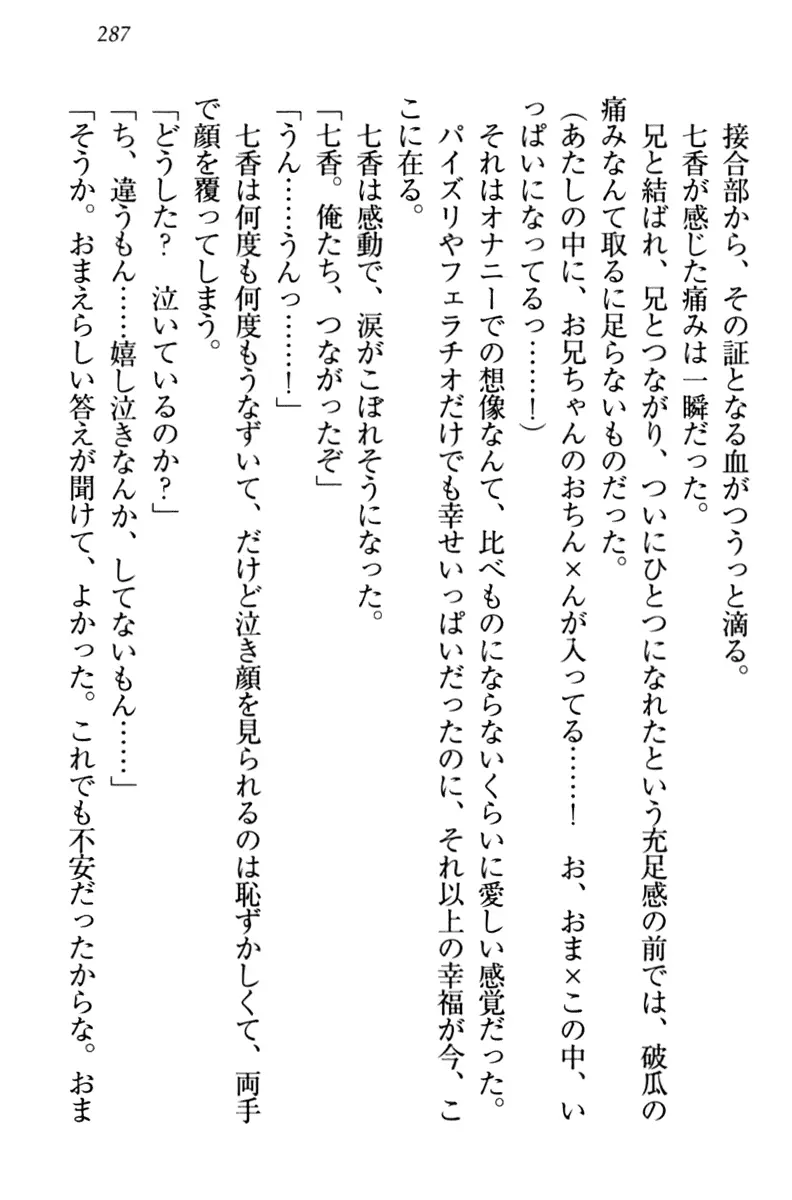 287
接合部から、その証となる血がつうっと滴る。
七香が感じた痛みは一瞬だった。
兄と結ばれ、兄とつながり、ついにひとつになれたという充足感の前では、破瓜の
痛みなんて取るに足らないものだった。
(あたしの中に、お兄ちゃんのおちん×んが入ってる……！　お、おま×この中、い
っぱいになってるっ……！)
それはオナニーでの想像なんて、比べものにならないくらいに愛しい感覚だった。
パイズリやフェラチオだけでも幸せいっぱいだったのに、それ以上の幸福が今、こ
こに在る。
七香は感動で、涙がこぼれそうになった。
「七香。俺たち、つながったぞ」
「うん……うんっ……！」
七香は何度も何度もうなずいて、だけど泣き顔を見られるのは恥ずかしくて、両手
で顔を覆ってしまう。
「どうした？　泣いているのか？」
「ち、違うもん……嬉し泣きなんか、してないもん……」
「そうか。おまえらしい答えが聞けて、よかった。これでも不安だったからな。おま